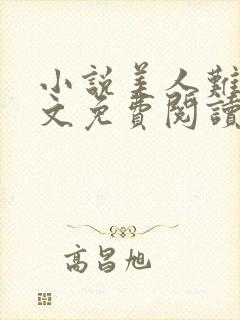 小說美人難
文免費閱讀
高昌旭